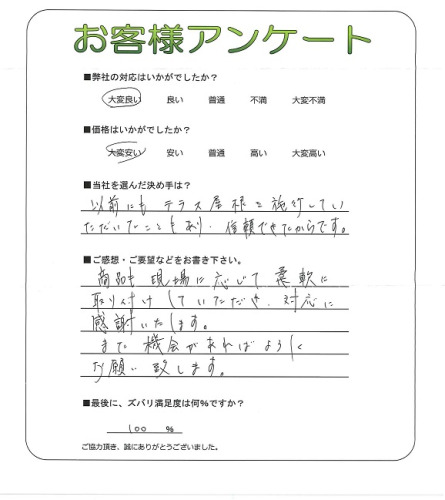 お客様アンケート
■弊社の対応はいかがでしたか？
大変良い 良い 普通 不満 大変不満
■価格はいかがでしたか？
大変安い 安い 普通 高い 大変高い
■当社を選んだ決め手は？
以前にも テラス屋根を施行してい
ただいたこともあり、信頼できたからです。
■ご感想・ご要望などをお書き下さい。
商品も現場に応じて柔軟に
取り付けしていただき、対応に
感謝いたします。
また機会があればよろしく
お願い致します。
■最後に、ズバリ満足度は何％ですか？
100 %
ご協力頂き、誠にありがとうございました。